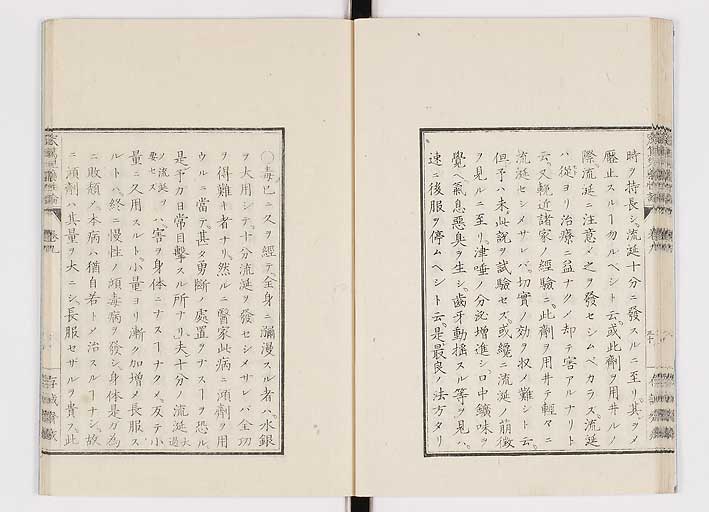 時ヲ持長シ流涎十分ニ發スルニ至リ其ヲメ
壓止スルヿ勿ルベシト云或此劑ヲ用井ルノ
際流涎ニ注意メ之ヲ發セシムベカラズ流涎
ハ從ヨリ治療ニ益ナクメ却テ害アルナリト
云又輓近諸家ノ經驗ニ此劑ヲ用井テ輕々ニ
流涎セシメサレバ切實ノ効ヲ收メ難シト云
但予ハ未此説ヲ試驗セズ或纔ニ流涎ノ萠徴
ヲ見ルニ至リ津唾ノ分泌增進シ口中鑛味ヲ
覺ヘ氣息惡臭ヲ生シ齒牙動搖スル等ヲ見ハ
速ニ後服ヲ停ムヘシト云是最良ノ法方タリ
○毒已ニ久ヲ經テ全身ニ瀰漫スル者ハ水銀
ヲ大用シテ十分流涎ヲ發セシメサレバ全功
ヲ得難キ者ナリ然ルニ醫家此病ニ澒劑ヲ用
ウルニ當テ甚タ勇斷ノ處置ヲナスヿヲ恐ル
是予カ日常目擊スル所ナリ夫十分ノ流涎大過
ノ流涎ヲ要セズハ害ヲ身体ニナスヿナク反テ小
量ニ久用スルト小量ヨリ漸ク加增メ長服ス
ルトハ終ニ慢性ノ澒毒病ヲ發シ身体是カ為
ニ敗頽メ本病ハ猶自若トメ治スルヿナシ故
ニ澒劑ハ其量ヲ大ニシ長服セザルヲ貴ス此